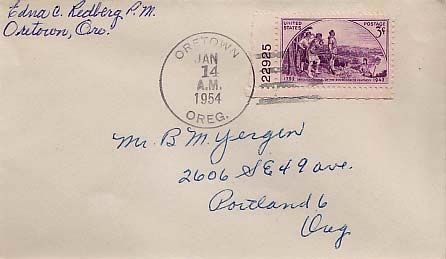 Edna C. Redberg P.M.
Oretown, Ore.
ORETOWN
JAN
14
A.M.
1954
OREG.
22925
UNITED STATES
POSTAGE
3¢
1792
1942
Mr. B M Yergen
2606 SE 49 ave.
Portland 6
Oreg